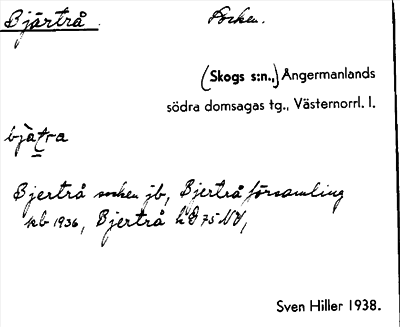 Bjärtrå. Socken.
(Skogs s:n.,) Ångermanlands
södra domsagas tg., Västernorrl. l.
bjàt̠ra
Bjertrå socken jb, Bjertrå församling
kb 1936, Bjertrå
Sven Hiller 1938.